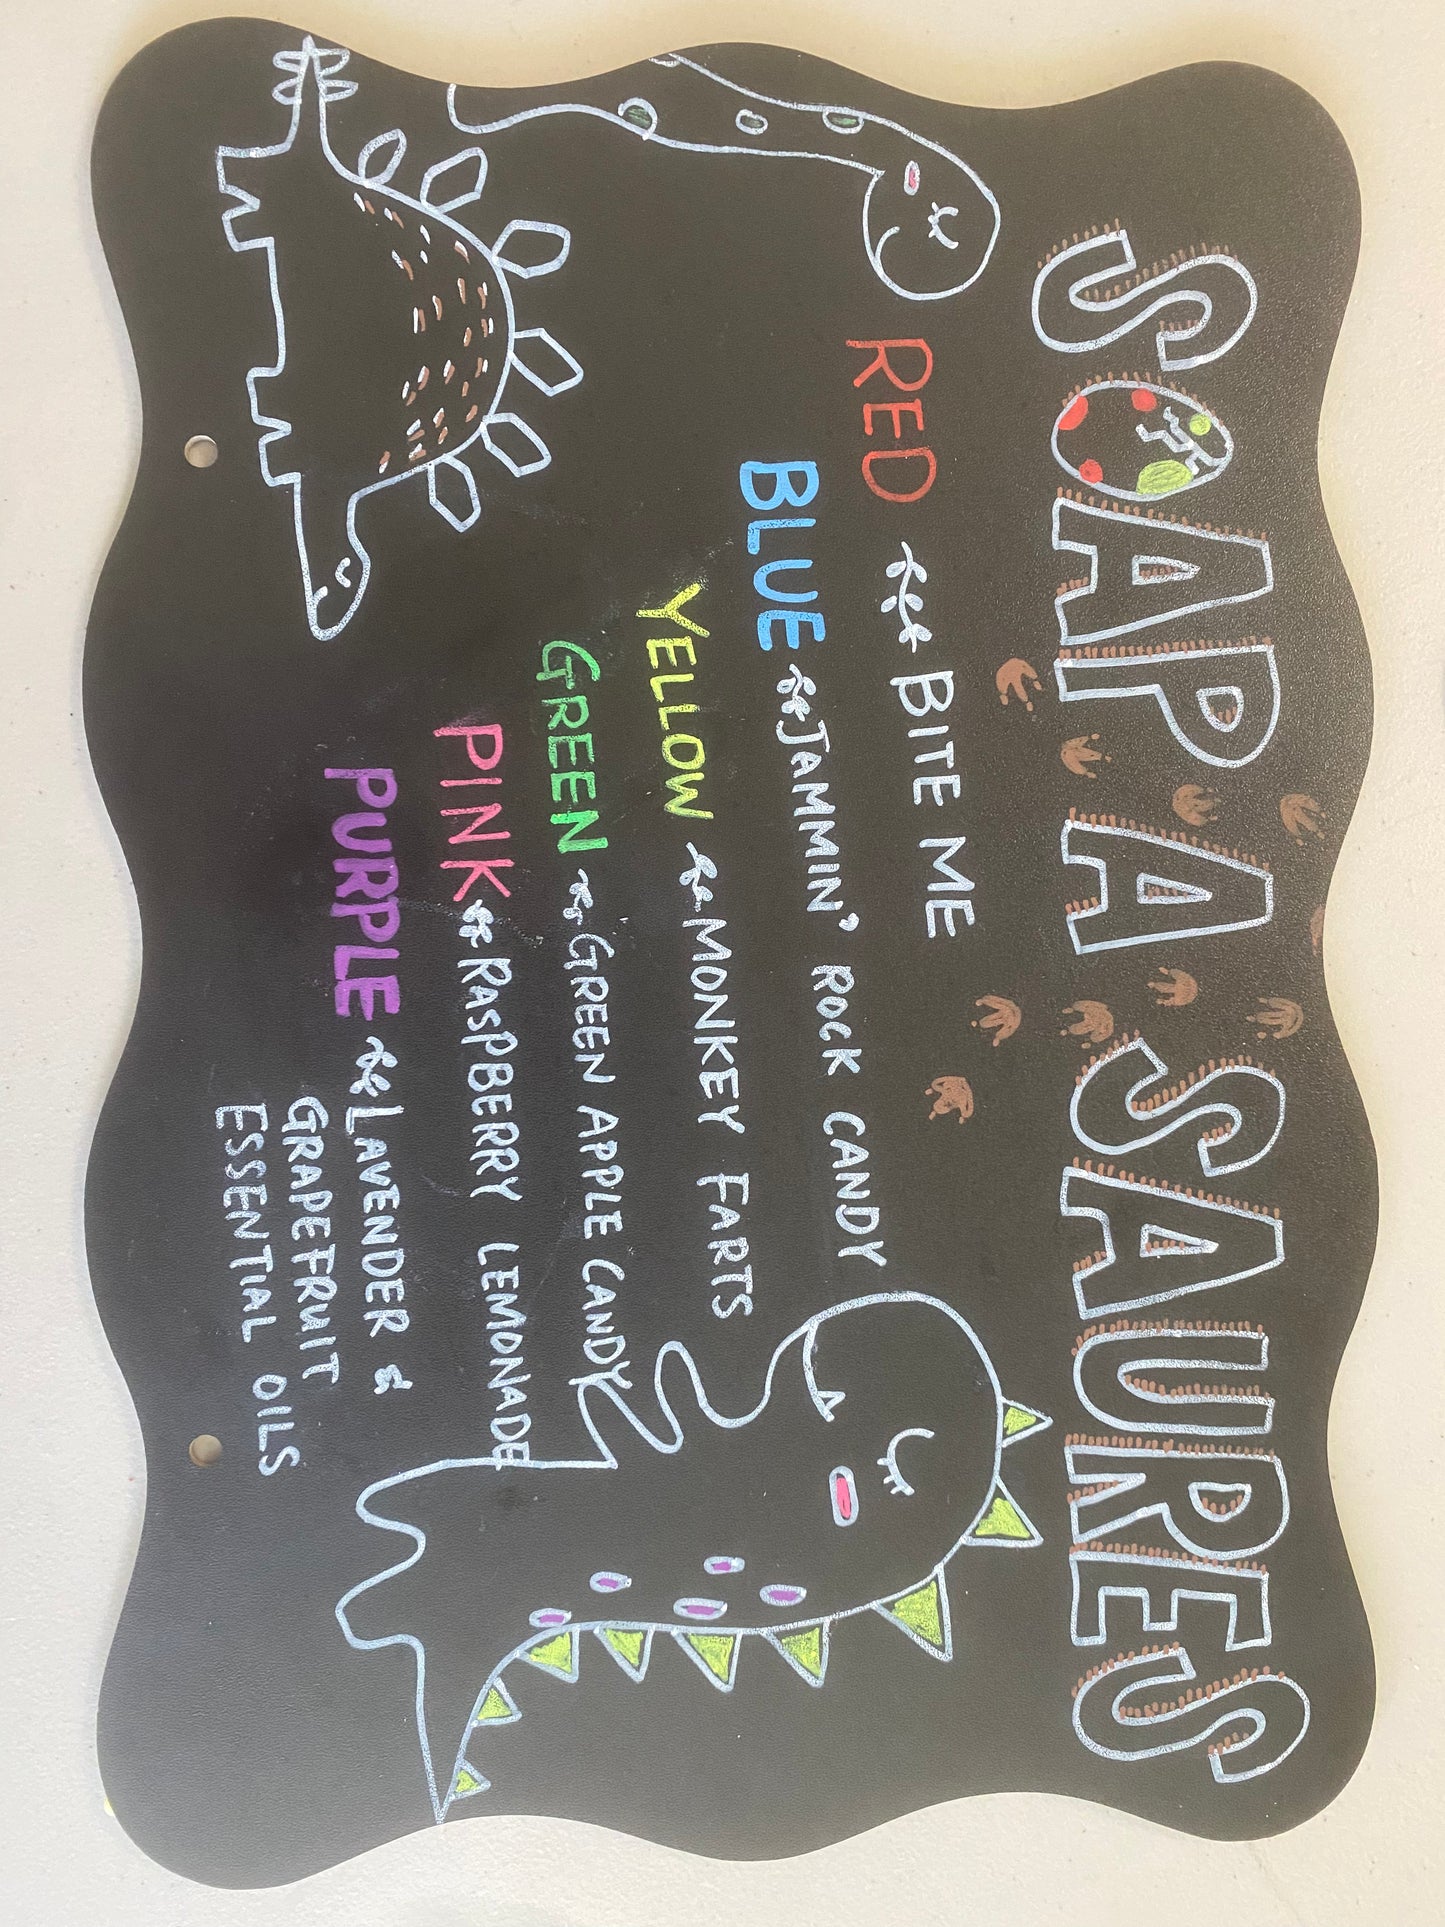 SOAP A SAURES
RED BITE ME
BLUE JAMMIN' ROCK CANDY
YELLOW MONKEY FARTS
GREEN GREEN APPLE CANDY
PINK RASPBERRY LEMONADE
PURPLE LAVENDER &
GRAPEFRUIT
ESSENTIAL OILS